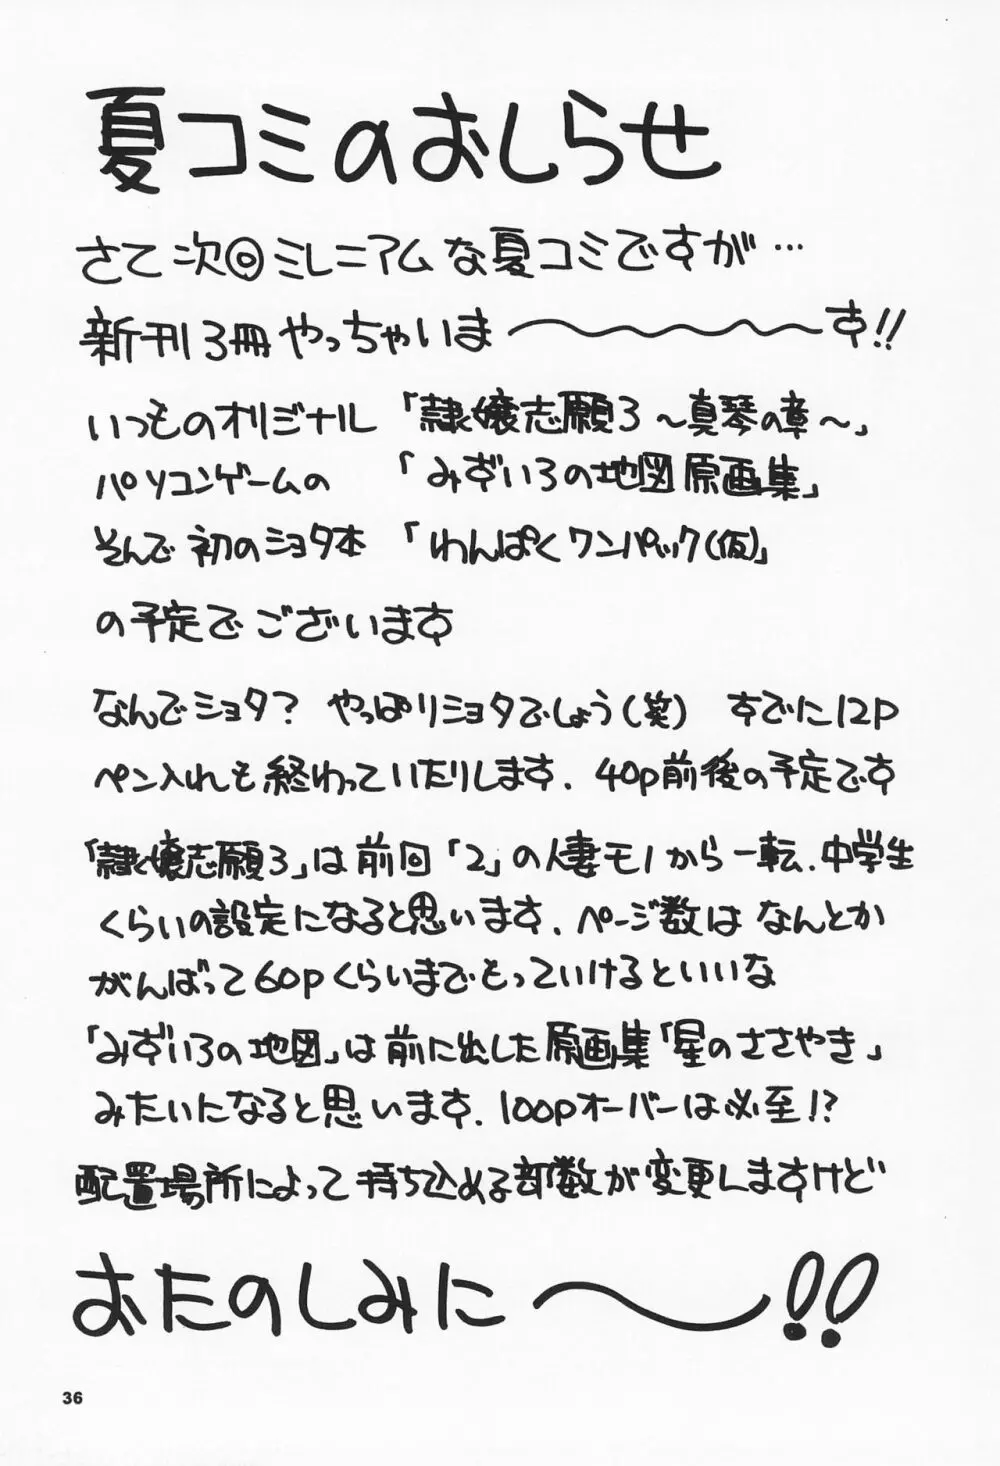 夏コミのおしらせ
さて次回ミレニアムな夏コミですが…
新刊3冊やっちゃいま〜〜〜〜す!!
いつものオリジナル 「隷嬢志願3 〜真琴の章〜」
パソコンゲームの 「みずいろの地図原画集」
そんで初のショタ本 「わんぱくワンパック(仮)」
の予定でございます
なんでショタ? やっぱりショタでしょう(笑) すでに12P
ペン入れも終わっていたりします. 40p前後の予定です
「隷嬢志願3」は前回「2」の人妻モノから一転.中学生
くらいの設定になると思います.ページ数はなんとか
がんばって60pくらいまでもっていけるといいな
「みずいろの地図」は前に出した原画集「星のささやき」
みたいになると思います.100pオーバーは必至!?
配置場所によって持ち込める部数が変更しますけど
おたのしみに〜!!
36